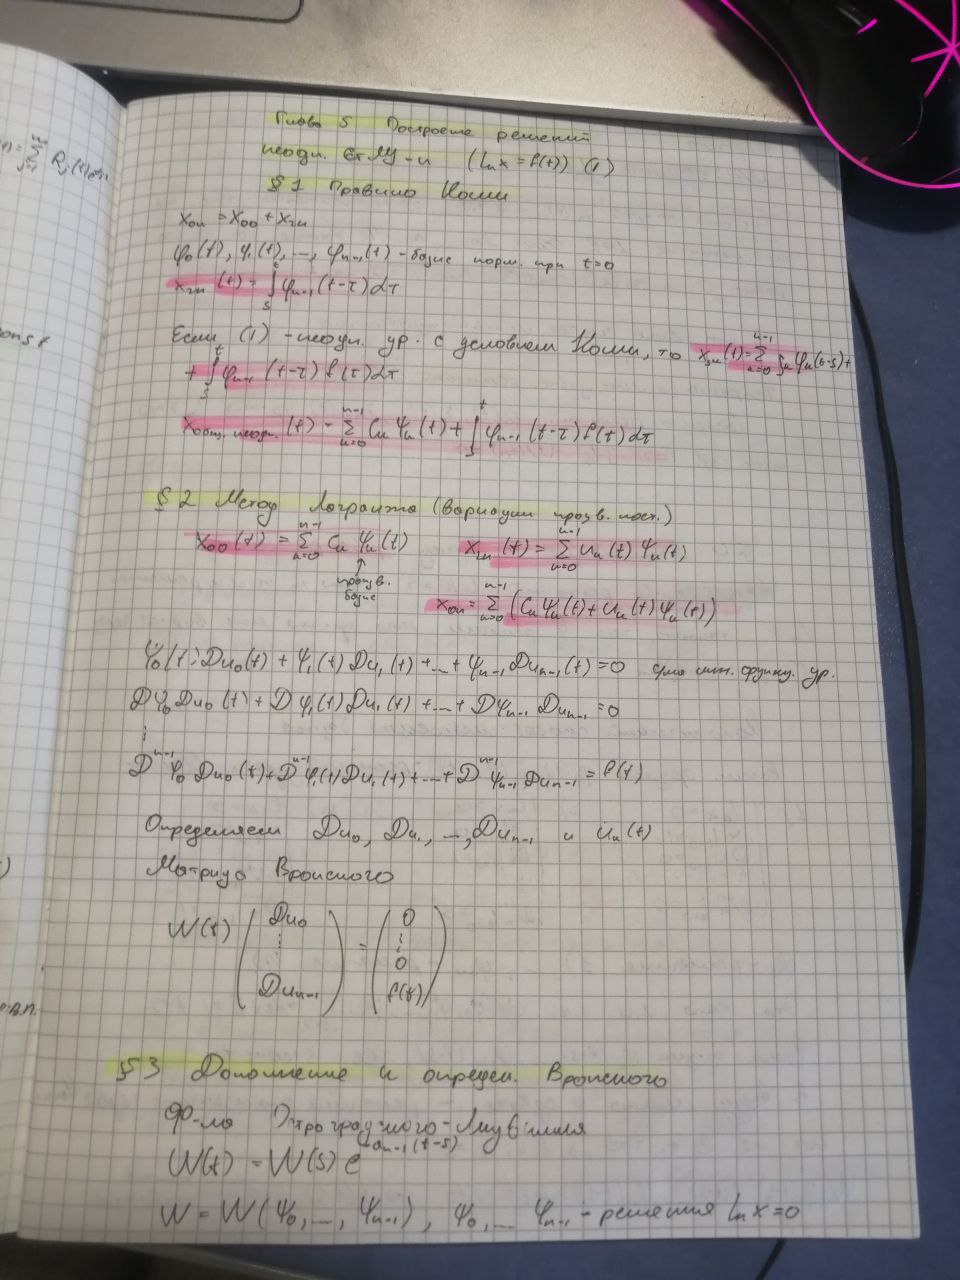 Глава 5 Построение решений
неодн. Ст ЛУ-n (Lₙx = f(t)) (1)
§1 Правило Коши
xон = xоо + xчн
φ₀(t), φ₁(t), ..., φₙ₋₁(t) - базис норм. при t=0
xчн (t) = ∫ₛᵗ φₙ₋₁(t-τ)dτ
Если (1) - неодн. ур. с условием Коши, то xзн(t) = Σₖ₌₀ⁿ⁻¹ ξₖ φₖ(t-s) +
+ ∫ₛᵗ φₙ₋₁ (t-τ) f(τ)dτ
xобщ. неодн. (t) = Σₖ₌₀ⁿ⁻¹ Cₖ Ψₖ(t) + ∫ₛᵗ φₙ₋₁ (t-τ) f(t)dτ
§2 Метод Лагранжа (Вариации произв. пост.)
xоо (t) = Σₖ₌₀ⁿ⁻¹ Cₖ Ψₖ(t) xчн (t) = Σₖ₌₀ⁿ⁻¹ uₖ(t) Ψₖ(t)
↑
произв.
базис
xон = Σₖ₌₀ⁿ⁻¹ (CₖΨₖ(t) + uₖ(t)Ψₖ(t))
Ψ₀(t) Du₀(t) + Ψ₁(t) Du₁(t) + ... + Ψₙ₋₁ Duₙ₋₁(t) = 0 функц. ур.
DΨ₀ Du₀(t) + DΨ₁(t)Du₁(t) + ... + DΨₙ₋₁ Duₙ₋₁ = 0
⋮
Dⁿ⁻¹Ψ₀ Du₀(t) + Dⁿ⁻¹Ψ₁(t)Du₁(t) + ... + Dⁿ⁻¹Ψₙ₋₁ Duₙ₋₁ = f(t)
Определяем Du₀, Du₁, ..., Duₙ₋₁ и uₖ(t)
Матрица Вронского
W(t) (Du₀ ⋮ Duₙ₋₁) = (0 ⋮ 0 f(t))
§3 Дополнение к определ. Вронского
Ф-ла Остроградского-Лиувилля
W(t) = W(s) e^{-aₙ₋₁(t-s)}
W = W(Ψ₀, ..., Ψₙ₋₁), Ψ₀, ... Ψₙ₋₁ - решения Lₙx=0